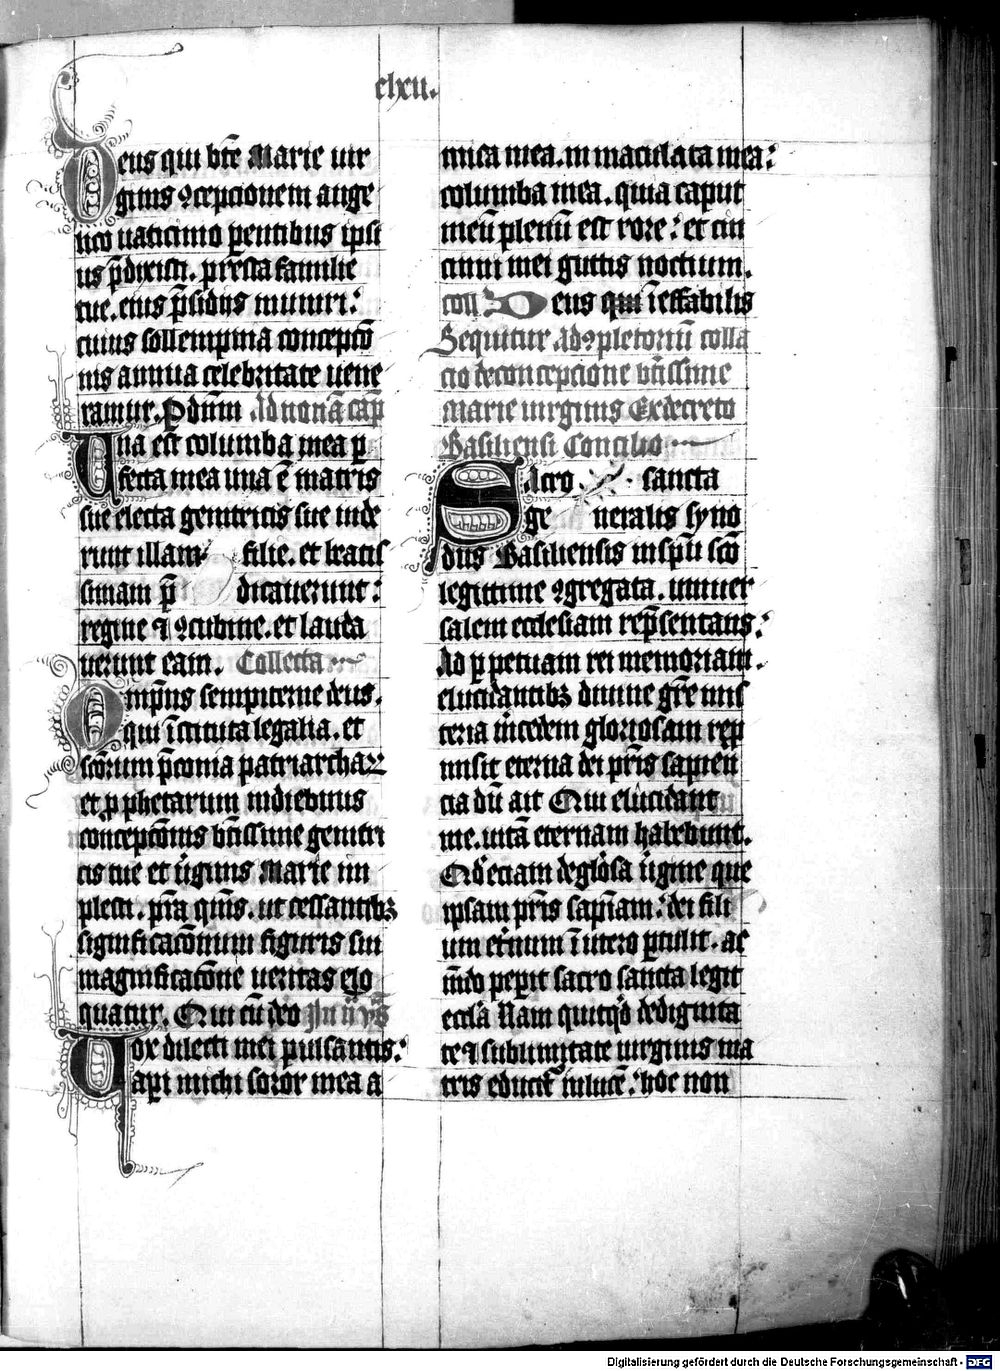 clxii.
Deus qui bt̄e Marie uir
ginis ꝯcepcionem ange
lico uaticinio ꝑentibus ipsi
us p̄dixisti. presta familie
tue. eius p̄sidiis muniri:
cuius sollempnia concepcō
nis annua celebritate uene
ramur. P dn̄m Ad nonā cap̄
Una est columba mea ꝑ
fecta mea una ē matris
sue electa genitricis sue uide
runt illam filie. et beatis
simam p̄ dicauerunt:
regine ⁊ ꝯcubine. et lauda
uerunt eam. Collecta
Omp̄ns sempiterne deus.
qui īstituta legalia. et
scōrum p̄conia patriarchaꝝ
et ꝓphetarum in diebus
concepcōnis bt̄issime genitri
cis tue et ūginis Marie im
plesti. pr̄a qm̄s. ut cessantibꝫ
significacōnum figuris sui
magnificacōne ueritas elo
quatur. Qui cū deo In ii vs̄
Uox dilecti mei pulsantis:
api michi soror mea a
mica mea. in maculata mea:
columba mea. quia caput
meū plenū est rore: et cin
cinni mei guttis noctium.
coll Deus qui ieffabilis
Sequitur Ad ꝯpletoriū colla
cio de concepcione bt̄issime
Marie uirginis Ex decreto
Basiliensi Concilio
Sacro sancta
ge neralis syno
dus Basiliensis in sp̄u scō
legittime ꝯgregata. uniuer
salem ecclesiam rep̄sentans:
Ad ꝑpetuam rei memoriam.
elucidantibꝫ diuine gr̄e mis
teria m̄cedem gloriosam rep
misit eterna dei pr̄is sapien
cia dū ait Qui elucidant
me. uitā eternam habebunt.
Qd̄ eciam de gl̄osa ūgine que
ipsam pr̄is sapīam: dei fili
um et̄num ī utero ꝑtulit. ac
m̄do peꝑit sacro sancta legit
eccl̄a Nam quitqd̄ de dignita
te ⁊ sublimitate uirginis ma
tris educit̄ in lucē: hoc non
Digitalisierung gefördert durch die Deutsche Forschungsgemeinschaft - DFG